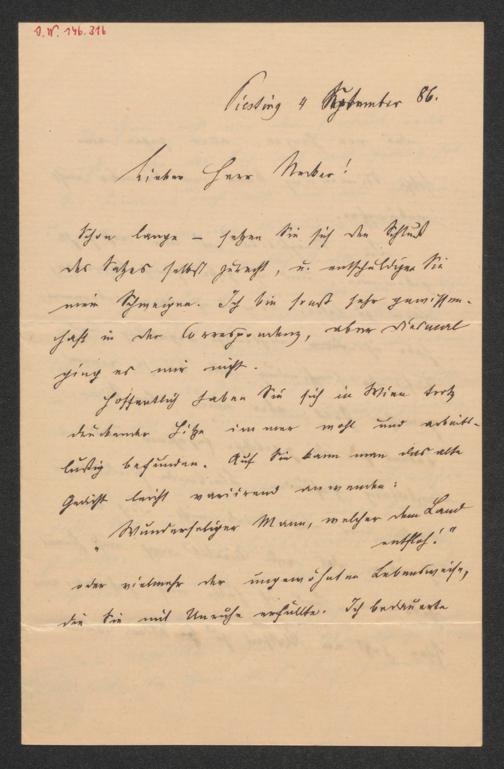 J.N. 146.316
Piesting 4 September 86.
Lieber Herr Necker!
Schon lange – setzen Sie sich den Schluß
des Satzes selbst zurecht, u. entschuldigen Sie
mein Schweigen. Ich bin sonst sehr gewissen-
haft in der Correspondenz, aber diesmal
ging es mir nicht.
Hoffentlich haben Sie sich in Wien trotz
drückender Hitze immer wohl und arbeits-
lustig befunden. Auf Sie kann man das alte
Gedicht leicht variirend anwenden:
„Wunderseliger Mann, welcher dem Land
entfloh!"
oder vielmehr der ungewohnten Lebensweise,
die Sie mit Unruhe erfüllte. Ich bedauerte